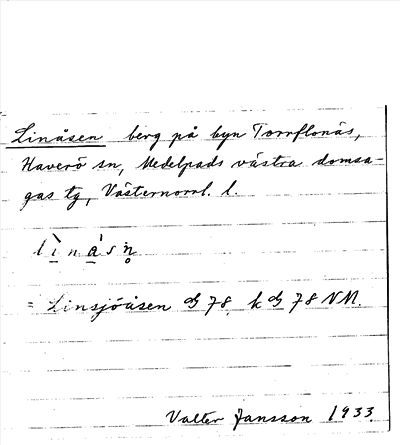 Linåsen berg på byn Torrflonäs,
Haverö sn, Medelpads västra domsa-
gas tg, Västernorrl. l.
lìnásn̥
= Linsjöåsen 78, k 78 NM.
Valter Jansson 1933